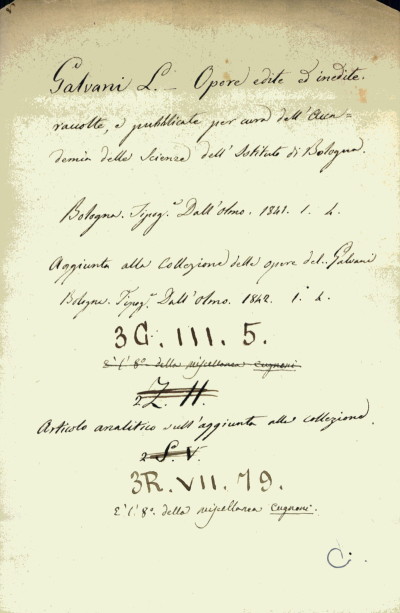 Galvani L. – Opere edite ed inedite.
raccolte, e pubblicate per cura dell'Acca=
demia delle Scienze dell'Istituto di Bologna.
Bologna. Tipog.ª Dall'Olmo. 1841. 1. 4.
Aggiunta alla Collezione delle opere del.. Galvani
Bologna. Tipog.ª Dall'Olmo. 1842. 1. 4.
3G. III. 5.
E' l' 8º della miscellanea Cugnoni.
2 Z. H.
Articolo analitico sull'aggiunta alla collezione.
2 S. V.
3R. VII. 79.
E' l' 8º della miscellanea Cugnoni.
C.